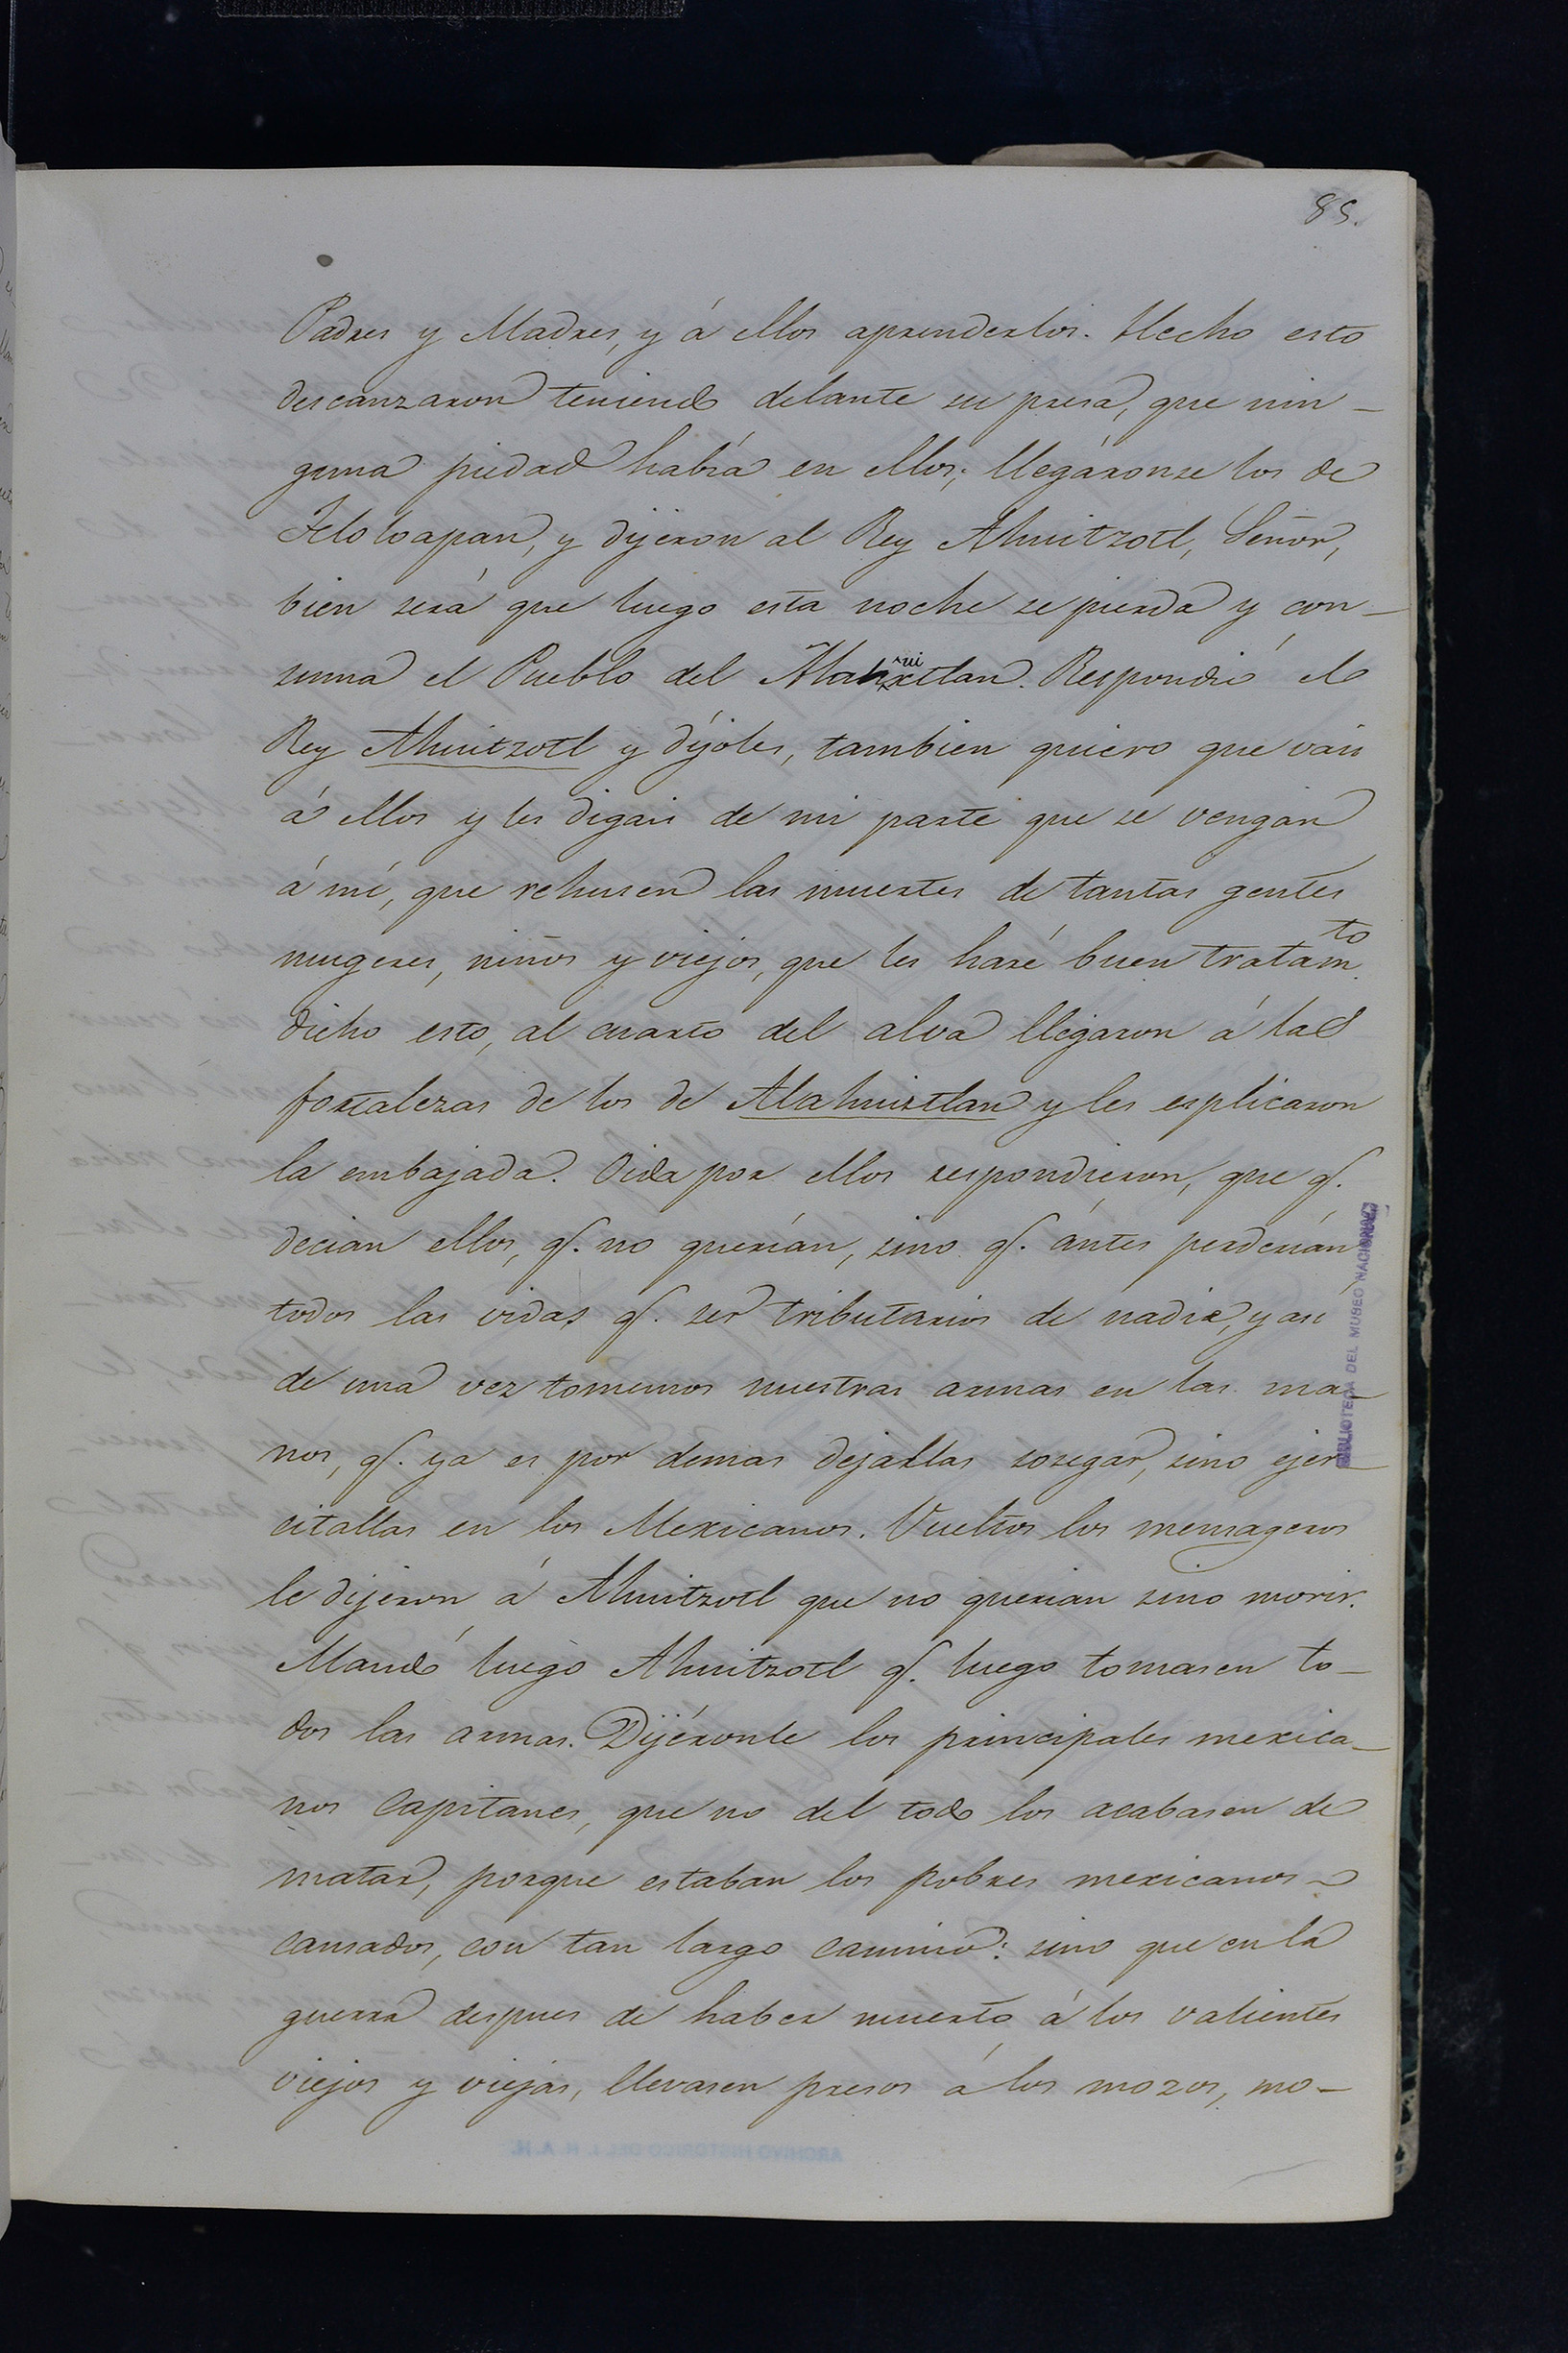 85.
Padres y Madres, y á ellos aprenderlos. Hecho esto
descanzaron teniendo delante su presa, que nin-
guna piedad habia en ellos; llegáronse los de
Teloloapan, y dijeron al Rey Ahuitzotl, Señor,
bien será que luego esta noche se pierda y con-
suma el Pueblo del Alahuixtlan. Respondió el
Rey Ahuitzotl y díjoles, tambien quiero que vais
á ellos y les digais de mi parte que se vengan
á mí, que rehusen las muertes de tantas gentes
mugeres, niños y viejos, que les haré buen tratamto.
dicho esto, al cuarto del alva llegaron á las
fortalezas de los de Alahuixtlan y les esplicaron
la embajada. Oida por ellos respondieron, que q.
decian ellos, q. no querían, sino q. ántes perderían
todos las vidas q. ser tributarios de nadie, y asi
de una vez tomemos nuestras armas en las ma-
nos, q. ya es por demas dejallas sosegar, sino ejer-
citallas en los Mexicanos. Vueltos los mensageros
le dijeron á Ahuitzotl que no querian sino morir.
Mandó luego Ahuitzotl q. luego tomasen to-
dos las armas. Dijéronle los principales mexica-
nos Capitanes, que no del todo los acabasen de
matar, porque estaban los pobres mexicanos
cansados, con tan largo camino: sino que en la
guerra despues de haber muerto á los valientes
viejos y viejas, llevasen presos á los mozos, mo-
BIBLIOTECA DEL MUSEO NACIONAL
ARCHIVO HISTORICO DEL I. N. A. H.